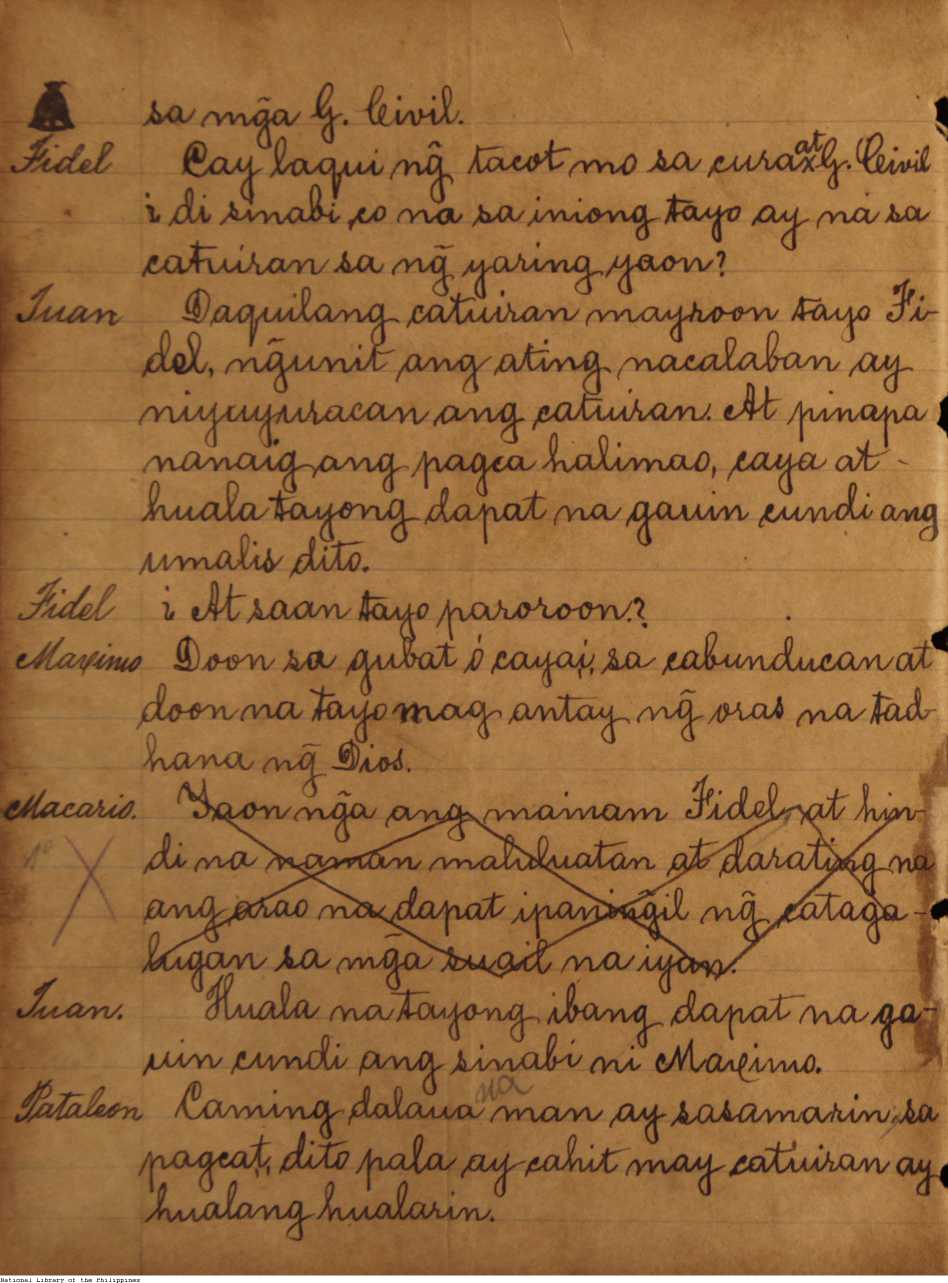 sa mg̃a G. Civil.
Fidel Cay laqui ng̃ tacot mo sa cura at G. Civil
¿ di sinabi co na sa iniong tayo ay na sa
catuiran sa ng̃ yaring yaon?
Juan Daquilang catuiran mayroon tayo Fi-
del, ng̃unit ang ating nacalaban ay
niyuyuracan ang catuiran. At pinapa
nanaig ang pagca halimao, caya at -
huala tayong dapat na gauin cundi ang
umalis dito.
Fidel ¿ At saan tayo paroroon?
Maximo Doon sa gubat ó cayai, sa cabunducan at
doon na tayo mag antay ng̃ oras na tad-
hana ng̃ Dios.
Macario. Yaon ng̃a ang mainam Fidel, at hin-
di na naman maliduatan at darating na
ang arao na dapat ipaning̃il ng̃ cataga-
lugan sa mg̃a suail na iyan.
Juan. Huala na tayong ibang dapat na ga-
uin cundi ang sinabi ni Maximo.
Pataleon Caming dalaua na man ay sasamarin, sa
pagcat, dito pala ay cahit may catuiran ay
hualang hualarin.
National Library of the Philippines